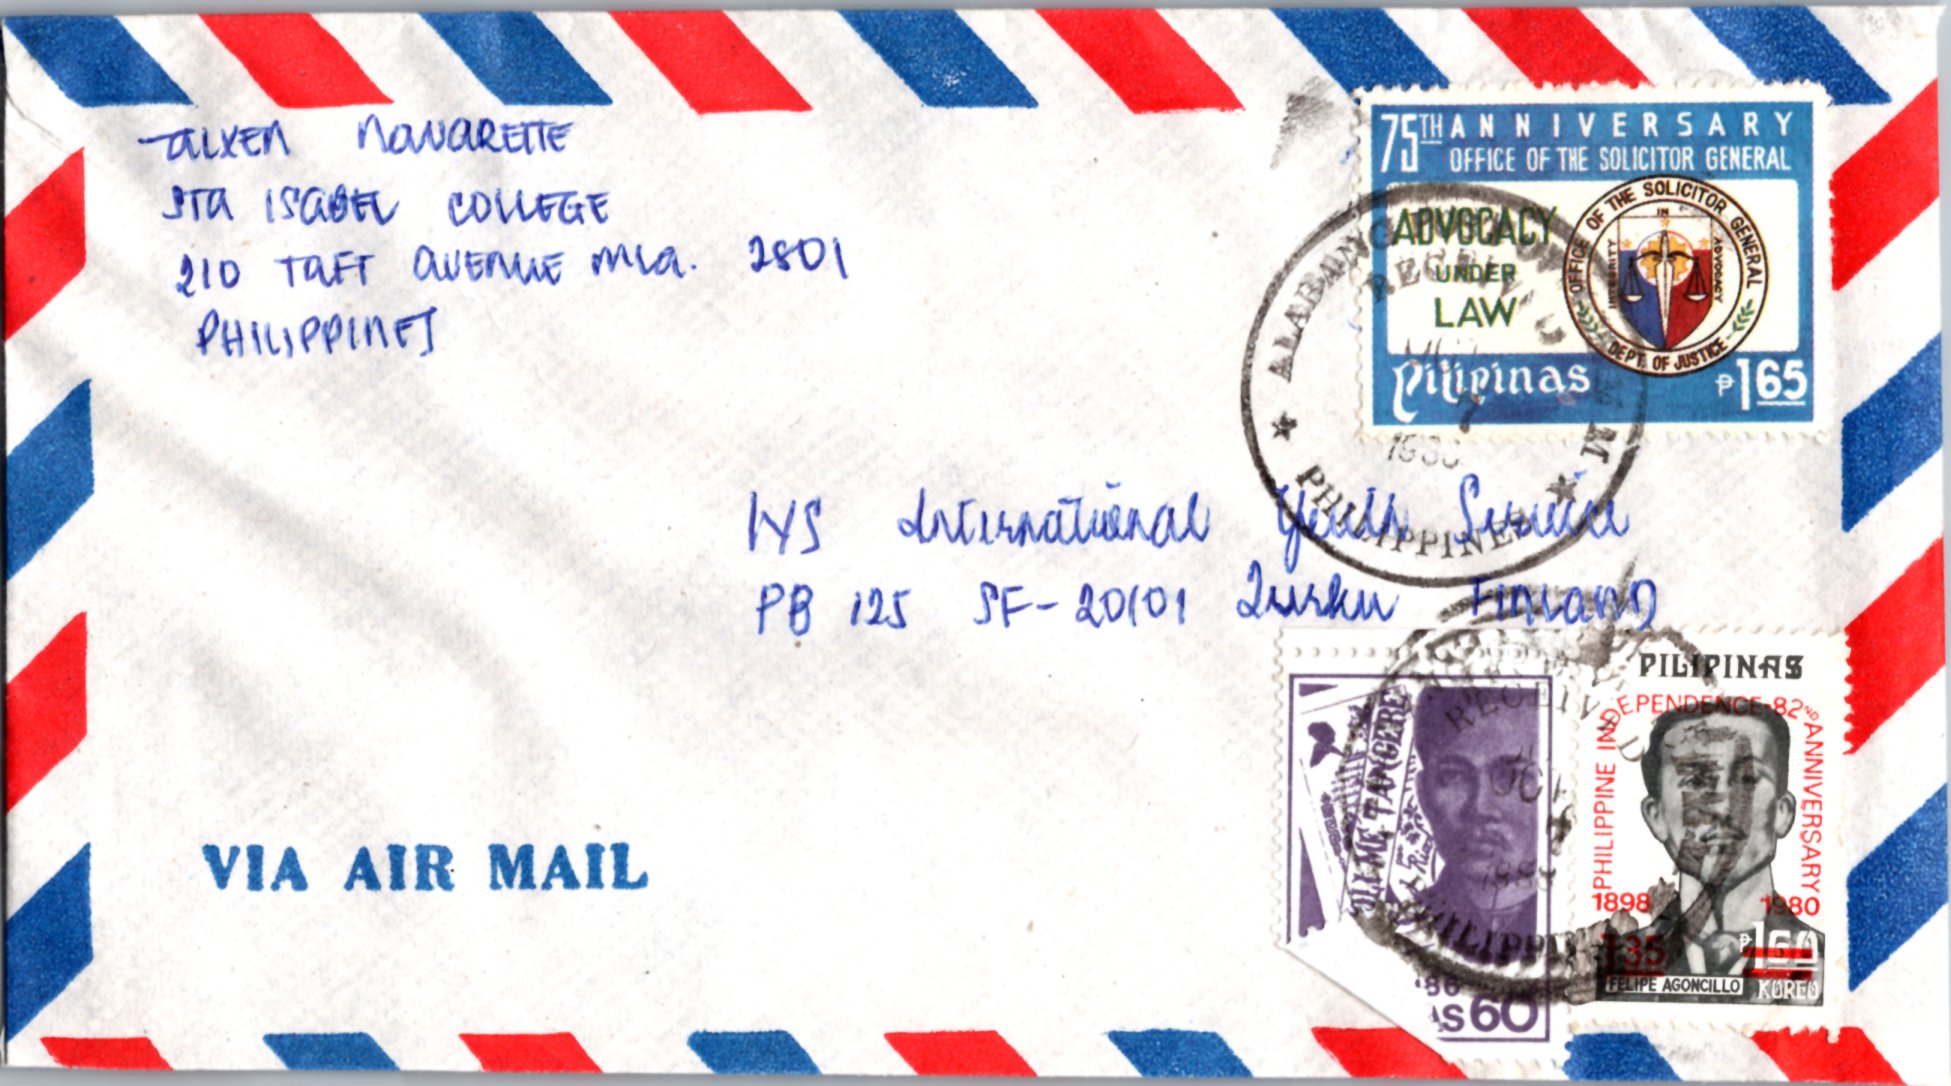 Talxen Navarette
STA ISABEL COLLEGE
210 TAFT AVENUE Mla. 2801
PHILIPPINES
75TH ANNIVERSARY
OFFICE OF THE SOLICITOR GENERAL
ADVOCACY
UNDER
LAW
OFFICE OF THE SOLICITOR GENERAL
IN
INTEGRITY
ADVOCACY
DEPT. OF JUSTICE
Pilipinas
₱165
ALABANG
M M
PHILIPPINES
7
IYS International Youth Service
PB 125 SF-20101 Turku Finland
NOLI ME TANGERE
J. Rizal
'86
AS 60
RECEIVED
PILIPINAS
PHILIPPINE INDEPENDENCE·82ND ANNIVERSARY
1898 1980
135
₱150
FELIPE AGONCILLO
KOREO
VIA AIR MAIL